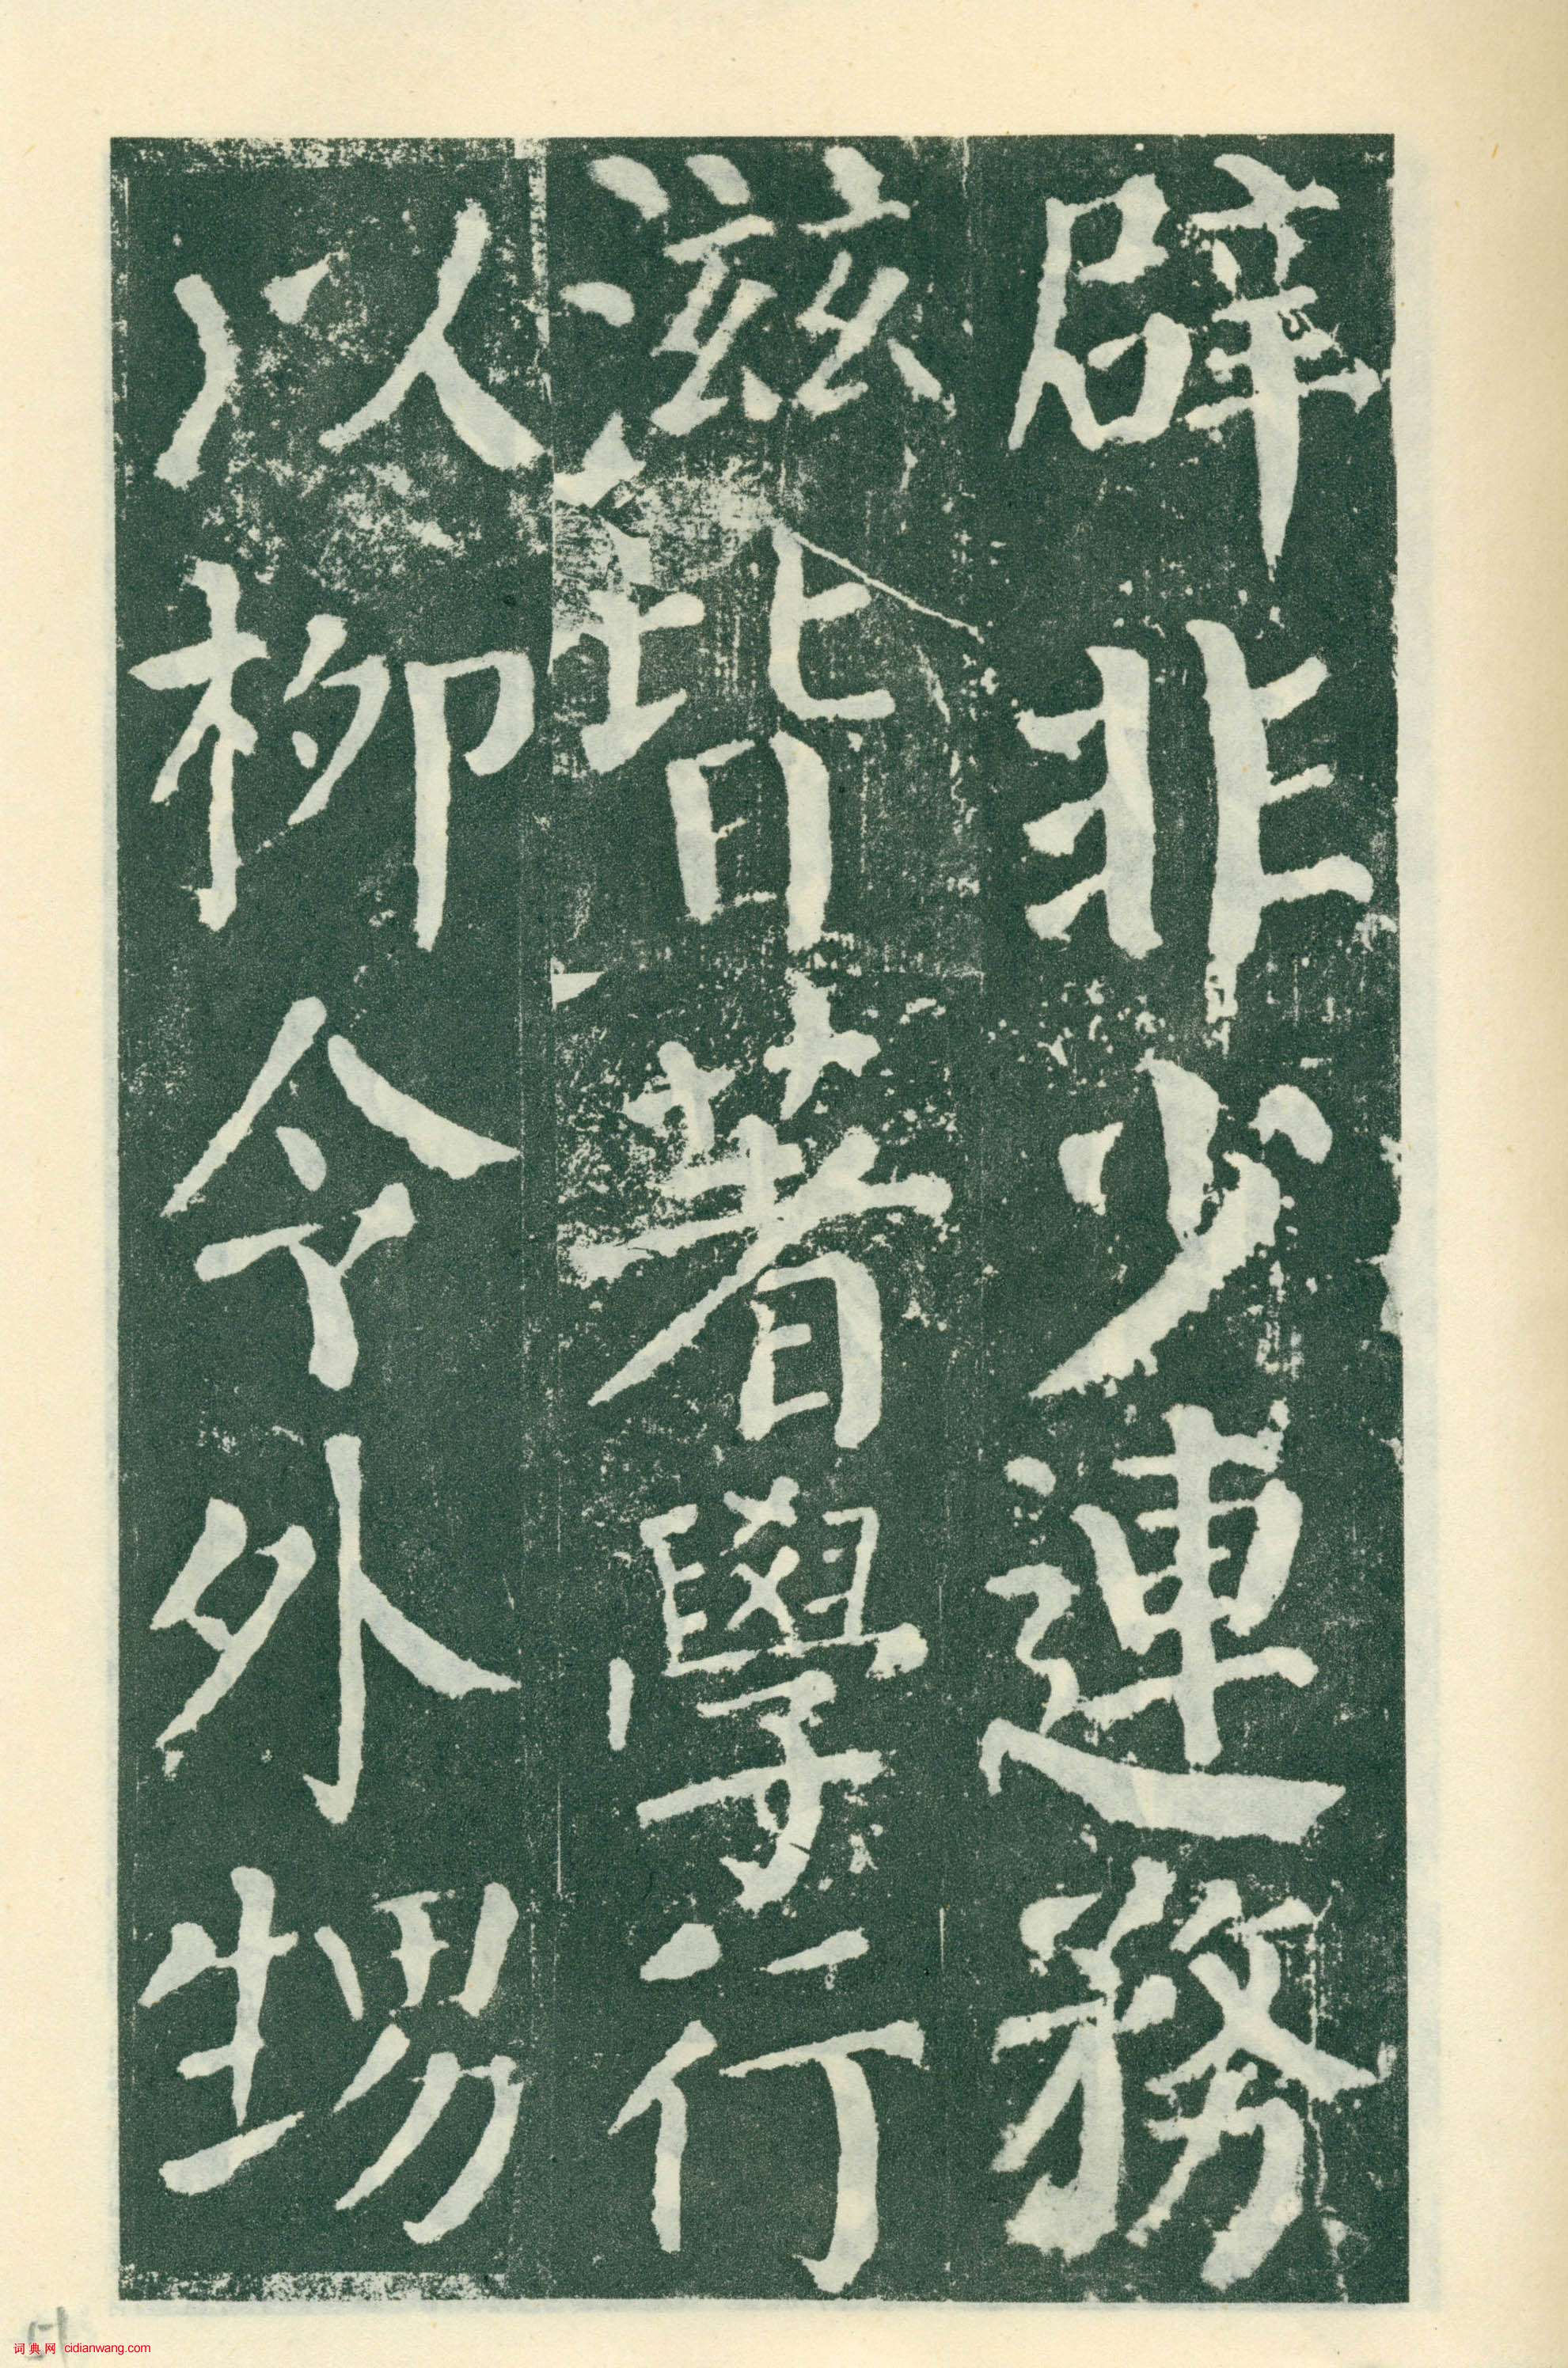 辟非少連務
滋皆著學行
以柳令外甥
词典网 cidianwang.com